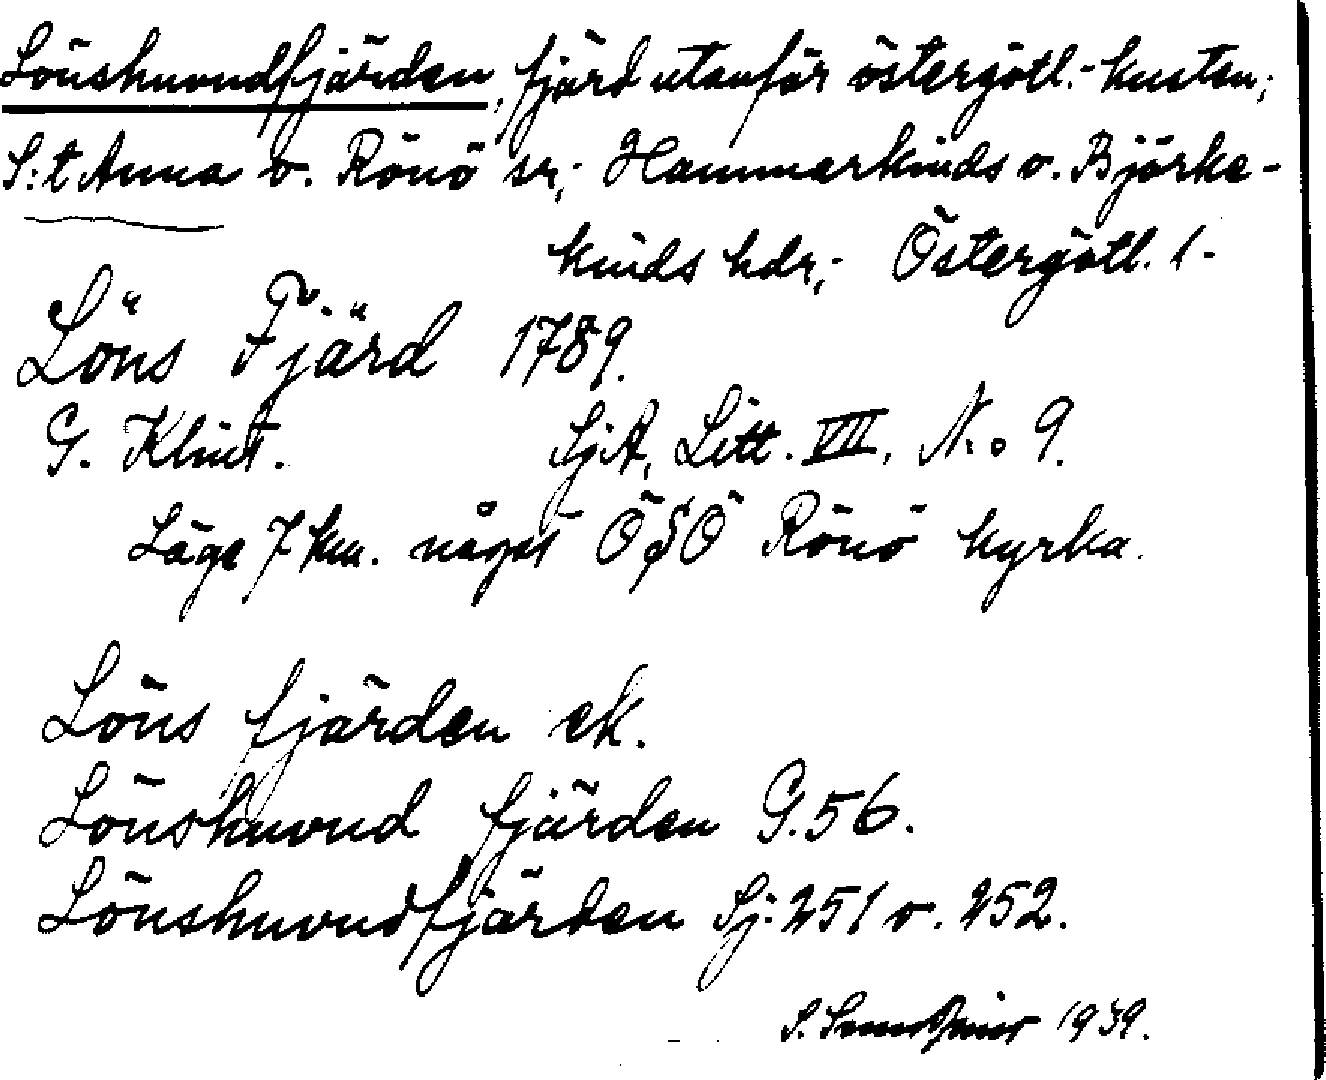 Lönshuvudfjärden, fjärd utanför östergötl.-kusten;
S:t Anna o. Rönö sr; Hammarkinds o. Björke-
kinds hdr; Östergötl. l-
Löns Fjärd 1789.
G. Klint. SjA, Litt. VII, No 9.
Läge 7 km. något ÖSÖ Rönö kyrka.
Löns fjärden ek.
Lönshuvud fjärden G.56.
Lönshuvudfjärden Sj: 251 o. 252.
S. 1939.